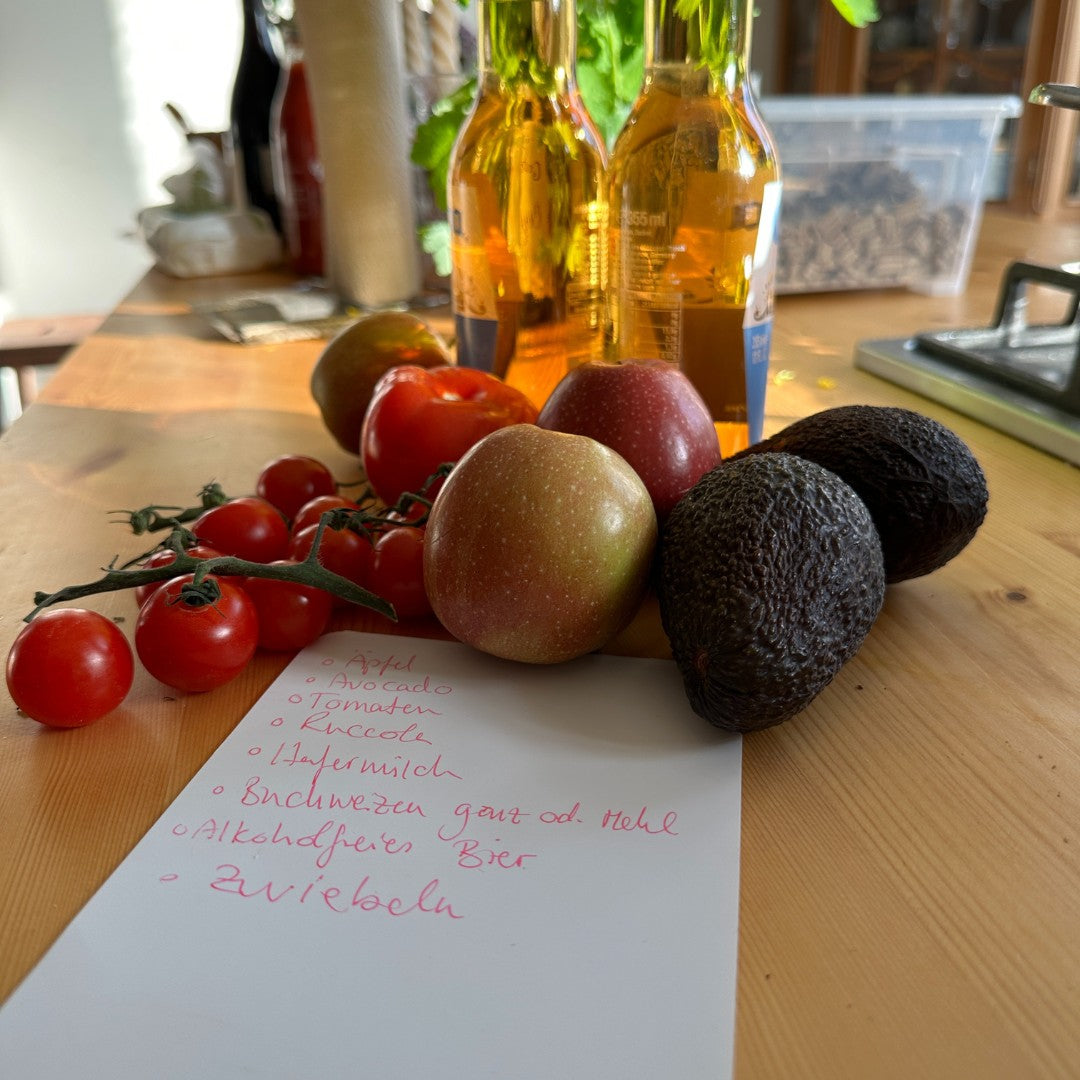 o Äpfel
o Avocado
o Tomaten
o Ruccola
o Hafermilch
o Buchweizen ganz od. Mehl
o Alkoholfreies Bier
o Zwiebeln
355 ml